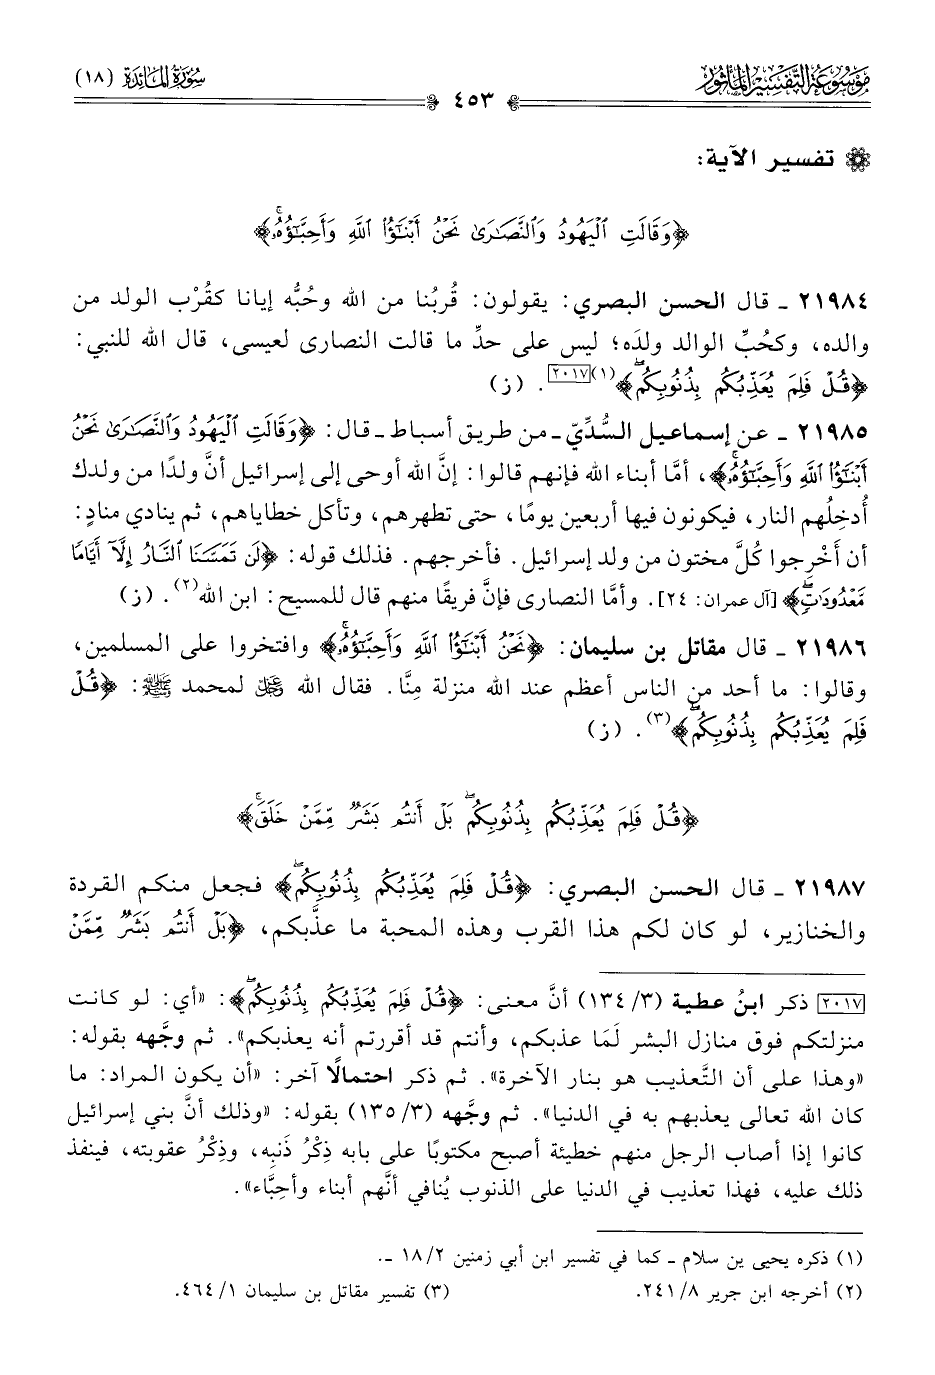 مَوْسُوعَة التَّفْسِير المَأْثُور
سُورَةُ المَائِدَة (١٨)
٤٥٣
تفسير الآية:
﴿وَقَالَتِ الْيَهُودُ وَالنَّصَارَىٰ نَحْنُ أَبْنَاؤُا اللَّهِ وَأَحِبَّاؤُهُۥۚ﴾
٢١٩٨٤ ـ قال الحسن البصري: يقولون: قُربُنا من الله وحُبُّه إيانا كقُرْب الولد من
والده، وكحُبِّ الوالد ولدَه؛ ليس على حدِّ ما قالت النصارى لعيسى، قال الله للنبي:
﴿قُلْ فَلِمَ يُعَذِّبُكُم بِذُنُوبِكُمۖ﴾(١)[٢٠١٧]. (ز)
٢١٩٨٥ ـ عن إسماعيل السُّدِّيّ ـ من طريق أسباط ـ قال: ﴿وَقَالَتِ الْيَهُودُ وَالنَّصَارَىٰ نَحْنُ
أَبْنَاؤُا اللَّهِ وَأَحِبَّاؤُهُۥۚ﴾، أمَّا أبناء الله فإنهم قالوا: إنَّ الله أوحى إلى إسرائيل أنَّ ولدًا من ولدك
أُدخِلُهم النار، فيكونون فيها أربعين يومًا، حتى تطهرهم، وتأكل خطاياهم، ثم ينادي منادٍ:
أن أَخْرِجوا كُلَّ مختون من ولد إسرائيل. فأخرجهم. فذلك قوله: ﴿لَن تَمَسَّنَا النَّارُ إِلَّا أَيَّامًا
مَّعْدُودَاتٍۖ﴾ [آل عمران: ٢٤]. وأمَّا النصارى فإنَّ فريقًا منهم قال للمسيح: ابن الله(٢). (ز)
٢١٩٨٦ ـ قال مقاتل بن سليمان: ﴿نَحْنُ أَبْنَاؤُا اللَّهِ وَأَحِبَّاؤُهُۥۚ﴾ وافتخروا على المسلمين،
وقالوا: ما أحد من الناس أعظم عند الله منزلة مِنَّا. فقال الله ﷻ لمحمد ﷺ: ﴿قُلْ
فَلِمَ يُعَذِّبُكُم بِذُنُوبِكُمۖ﴾(٣). (ز)
﴿قُلْ فَلِمَ يُعَذِّبُكُم بِذُنُوبِكُمۖ بَلْ أَنتُم بَشَرٌ مِّمَّنْ خَلَقَۚ﴾
٢١٩٨٧ ـ قال الحسن البصري: ﴿قُلْ فَلِمَ يُعَذِّبُكُم بِذُنُوبِكُمۖ﴾ فجعل منكم القردة
والخنازير، لو كان لكم هذا القرب وهذه المحبة ما عذَّبكم، ﴿بَلْ أَنتُم بَشَرٌ مِّمَّنْ
[٢٠١٧] ذكر ابنُ عطية (٣/ ١٣٤) أنَّ معنى: ﴿قُلْ فَلِمَ يُعَذِّبُكُم بِذُنُوبِكُمۖ﴾: «أي: لو كانت
منزلتكم فوق منازل البشر لَمَا عذبكم، وأنتم قد أقررتم أنه يعذبكم». ثم وجَّهه بقوله:
«وهذا على أن التَّعذيب هو بنار الآخرة». ثم ذكر احتمالًا آخر: «أن يكون المراد: ما
كان الله تعالى يعذبهم به في الدنيا». ثم وجَّهه (٣/ ١٣٥) بقوله: «وذلك أنَّ بني إسرائيل
كانوا إذا أصاب الرجل منهم خطيئة أصبح مكتوبًا على بابه ذِكْرُ ذَنبِه، وذِكْرُ عقوبته، فينفذ
ذلك عليه، فهذا تعذيب في الدنيا على الذنوب يُنافي أنَّهم أبناء وأحِبَّاء».
(١) ذكره يحيى بن سلام ـ كما في تفسير ابن أبي زمنين ٢/ ١٨ ـ.
(٢) أخرجه ابن جرير ٨/ ٢٤١. (٣) تفسير مقاتل بن سليمان ١/ ٤٦٤.